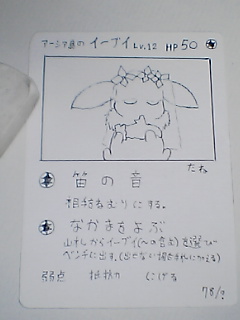 アーシア島のイーブイ Lv.12 HP50
たね
笛の音
相手をねむりにする。
なかまをよぶ
山札からイーブイ(への含む)を選び
ベンチに出す。
弱点 抵抗力 にげる
78/?